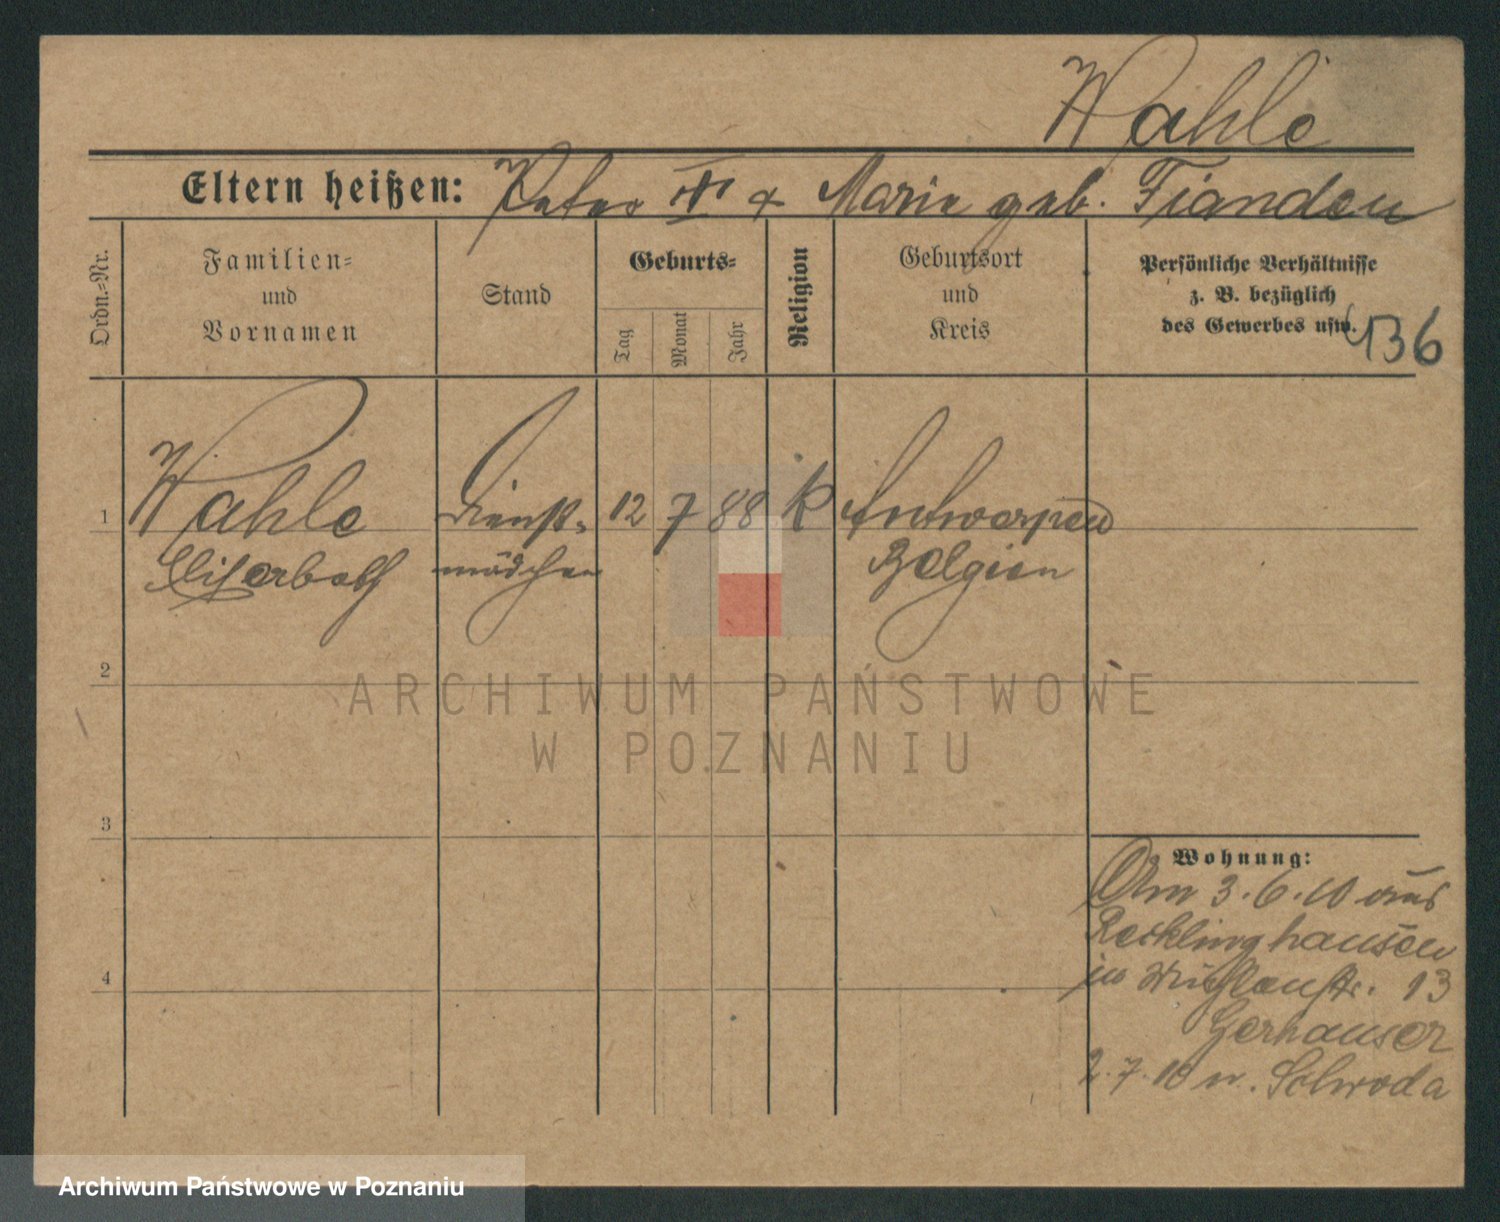 Wahle
Eltern heißen: Peter W & Marie geb. Fianden
Ordn.-Nr.
Familien-
und
Vornamen
Stand
Geburts-
Tag
Monat
Jahr
Religion
Geburtsort
und
Kreis
Persönliche Verhältnisse
z. B. bezüglich
des Gewerbes usw.
136
1
Wahle
Dienst-
12 7 88 k
Antwerpen
Elisabeth
mädchen
Belgien
ARCHIWUM PAŃSTWOWE
W POZNANIU
2
3
4
Wohnung:
Am 3.6.10 aus
Recklinghausen
in 13
Gerhauser
2.7.10 n. Schroda
Archiwum Państwowe w Poznaniu